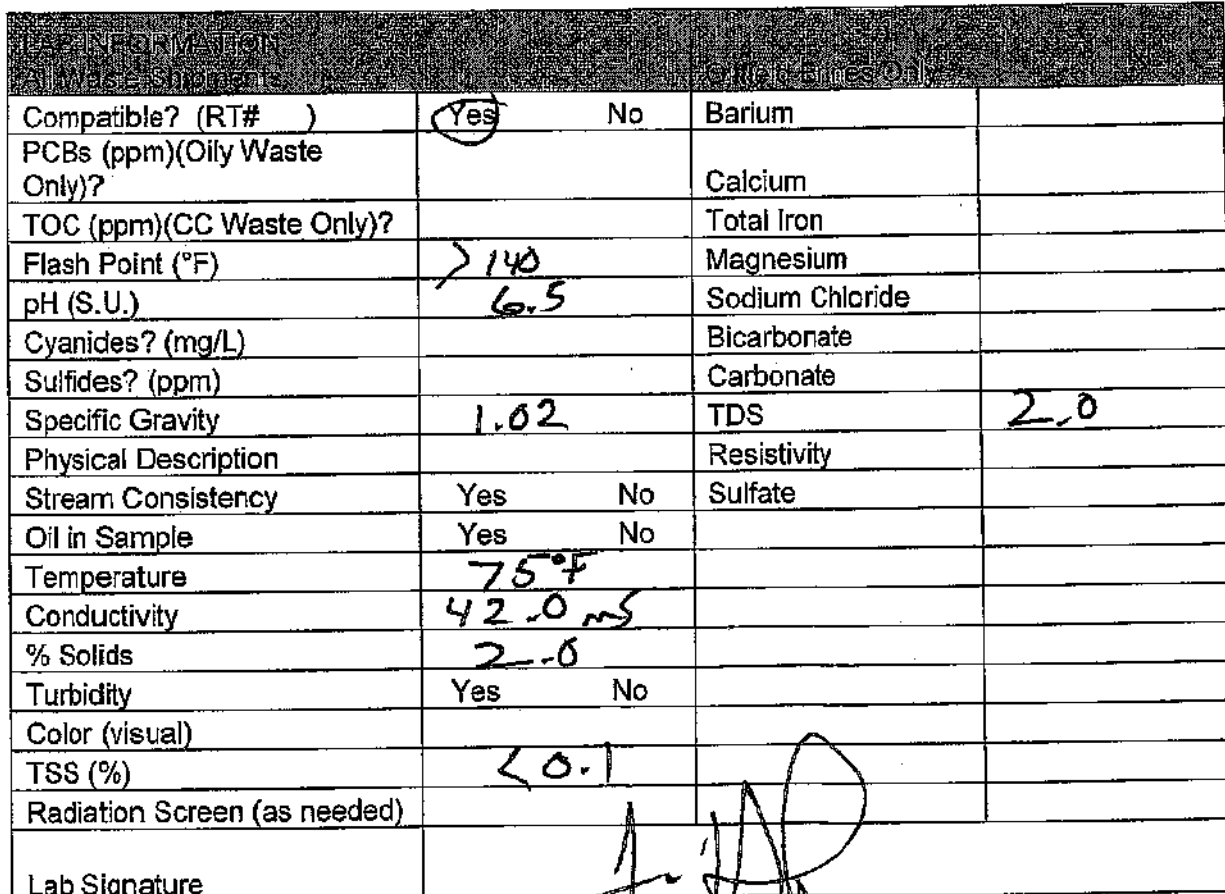 LAB INFORMATION
All Waste Shipments Oilfield Brines Only
Compatible? (RT# ) Yes No Barium
PCBs (ppm)(Oily Waste
Only)? Calcium
TOC (ppm)(CC Waste Only)? Total Iron
Flash Point (°F) >140 Magnesium
pH (S.U.) 6.5 Sodium Chloride
Cyanides? (mg/L) Bicarbonate
Sulfides? (ppm) Carbonate
Specific Gravity 1.02 TDS 2.0
Physical Description Resistivity
Stream Consistency Yes No Sulfate
Oil in Sample Yes No
Temperature 75°F
Conductivity 42.0 mS
% Solids 2.0
Turbidity Yes No
Color (visual)
TSS (%) <0.1
Radiation Screen (as needed)
Lab Signature